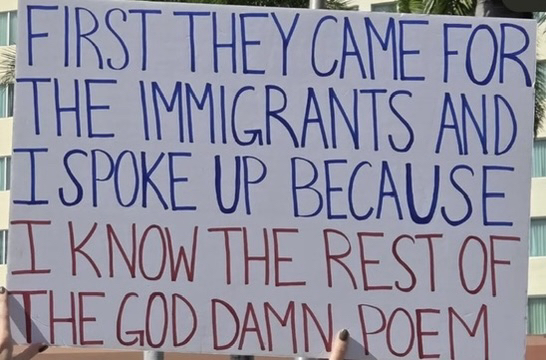 FIRST THEY CAME FOR
THE IMMIGRANTS AND
I SPOKE UP BECAUSE
I KNOW THE REST OF
THE GOD DAMN POEM